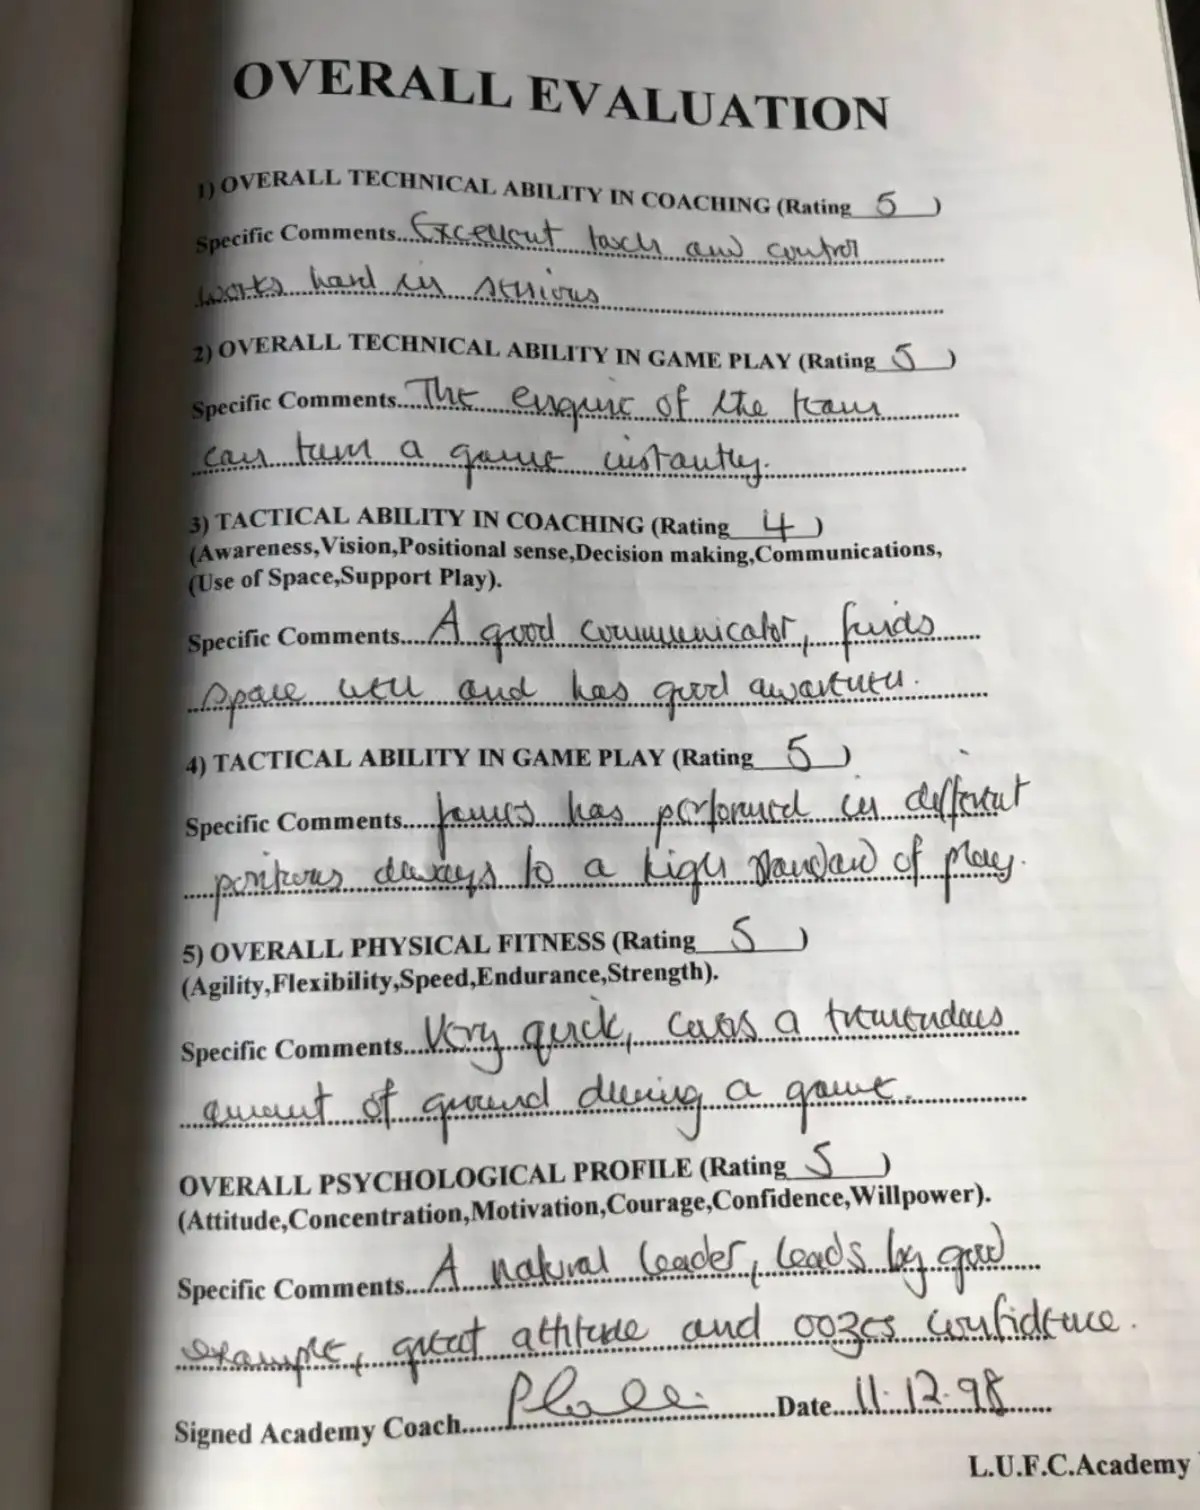 OVERALL EVALUATION
1) OVERALL TECHNICAL ABILITY IN COACHING (Rating 5 )
Specific Comments....Excellent touch and control
works hard in sessions
2) OVERALL TECHNICAL ABILITY IN GAME PLAY (Rating 5 )
Specific Comments....The engine of the team
can turn a game instantly.
3) TACTICAL ABILITY IN COACHING (Rating 4 )
(Awareness,Vision,Positional sense,Decision making,Communications,
(Use of Space,Support Play).
Specific Comments....A good communicator, finds
space well and has good awareness.
4) TACTICAL ABILITY IN GAME PLAY (Rating 5 )
Specific Comments....James has performed in different
positions always to a high standard of play.
5) OVERALL PHYSICAL FITNESS (Rating 5 )
(Agility,Flexibility,Speed,Endurance,Strength).
Specific Comments....Very quick, covers a tremendous
amount of ground during a game.
OVERALL PSYCHOLOGICAL PROFILE (Rating 5 )
(Attitude,Concentration,Motivation,Courage,Confidence,Willpower).
Specific Comments....A natural leader, leads by good
example, great attitude and oozes confidence.
Signed Academy Coach.... Date....11.12.98
L.U.F.C.Academy